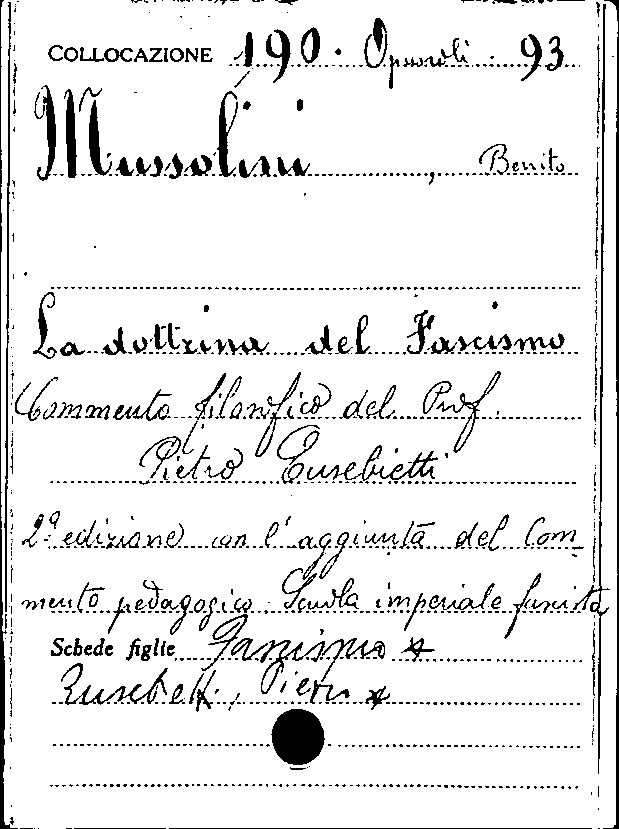 COLLOCAZIONE 190. Opuscoli. 93
Mussolini, Benito
La dottrina del Fascismo
Commento filosofico del Prof.
Pietro Eusebietti
2ª edizione con l'aggiunta del Com-
mento pedagogico. Scuola imperiale fascista
Schede figlie Fascismo *
Eusebietti, Pietro *